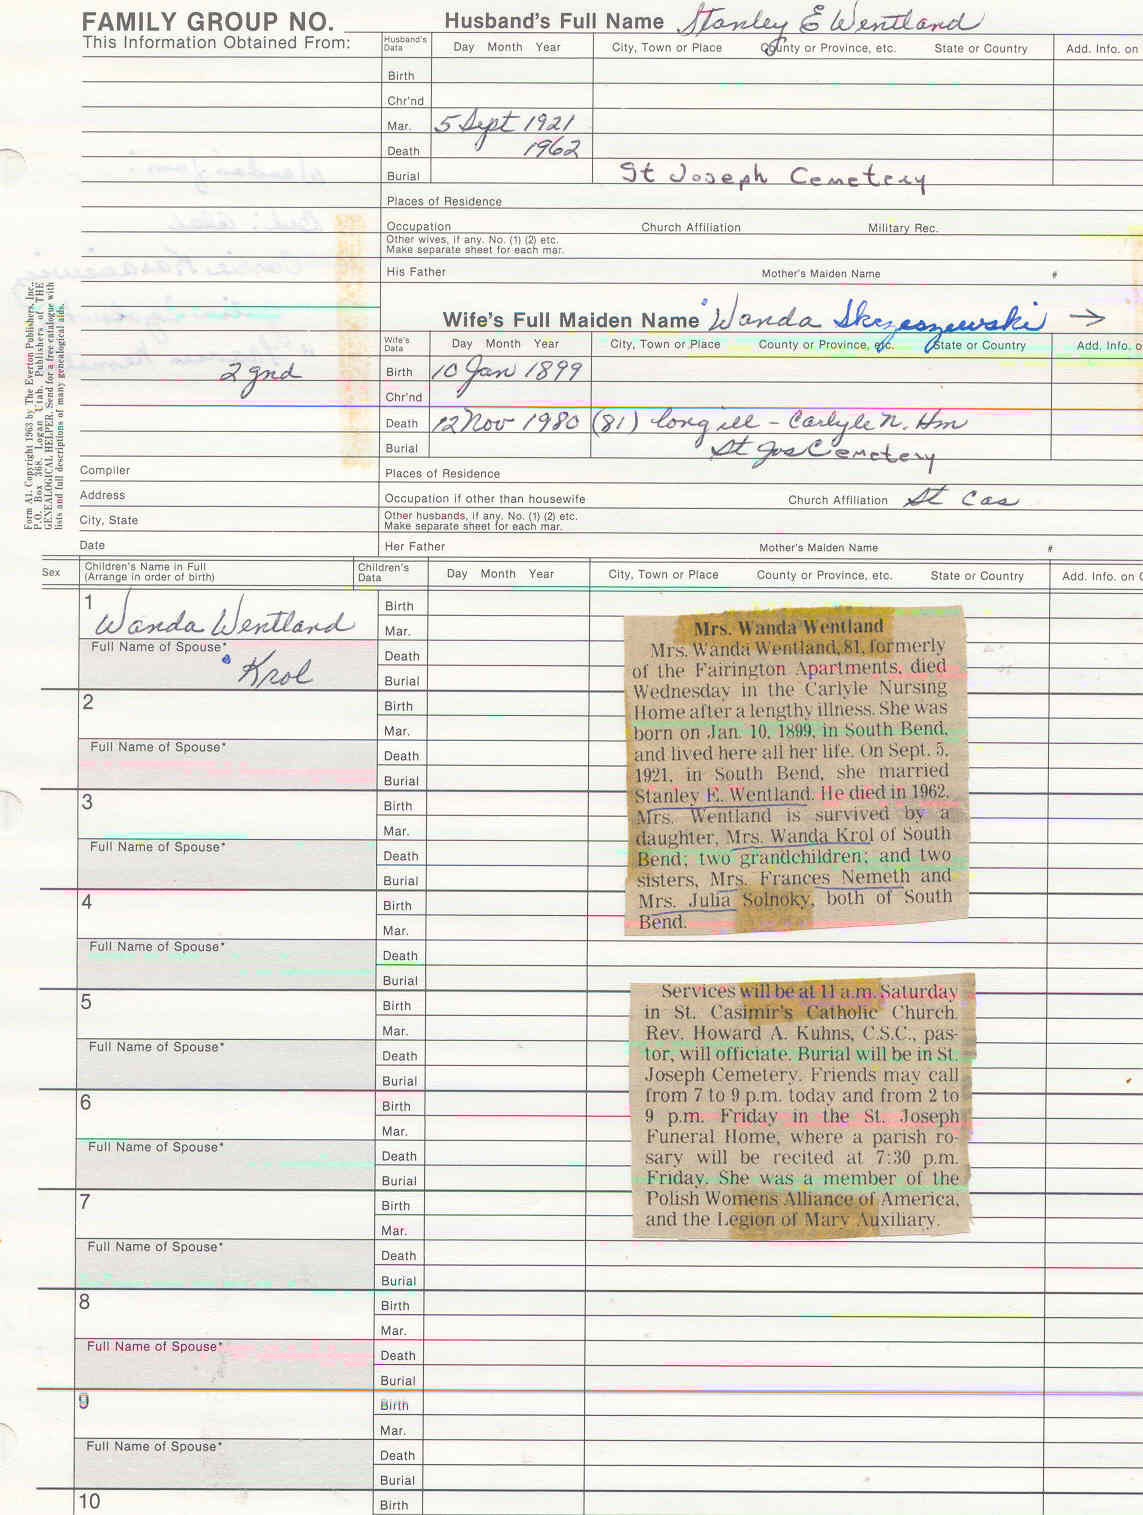 FAMILY GROUP NO.
Husband's Full Name Stanley E Wentland
This Information Obtained From:
Husband's Data Day Month Year City, Town or Place County or Province, etc. State or Country Add. Info. on
Birth
Chr'nd
Mar. 5 Sept 1921
Death 1962
Burial St Joseph Cemetery
Places of Residence
Occupation Church Affiliation Military Rec.
Other wives, if any. No. (1) (2) etc.
Make separate sheet for each mar.
His Father Mother's Maiden Name #
Wife's Full Maiden Name Wanda Skrzeszewski →
Wife's Data Day Month Year City, Town or Place County or Province, etc. State or Country Add. Info. o
2 gnd
Birth 10 Jan 1899
Chr'nd
Death 12 Nov 1980 (81) long ill - Carlyle N. Hm
Burial St Jos Cemetery
Compiler Places of Residence
Address Occupation if other than housewife Church Affiliation St Cas
City, State Other husbands, if any. No. (1) (2) etc.
Make separate sheet for each mar.
Date Her Father Mother's Maiden Name #
Form A1. Copyright 1963 by The Everton Publishers, Inc.,
P.O. Box 368, Logan Utah. Publishers of THE
GENEALOGICAL HELPER. Send for a free catalogue with
lists and full descriptions of many genealogical aids.
Sex Children's Name in Full
(Arrange in order of birth) Children's Data Day Month Year City, Town or Place County or Province, etc. State or Country Add. Info. on C
1 Wanda Wentland Birth
Mar.
Full Name of Spouse* Krol Death
Burial
2 Birth
Mar.
Full Name of Spouse* Death
Burial
3 Birth
Mar.
Full Name of Spouse* Death
Burial
4 Birth
Mar.
Full Name of Spouse* Death
Burial
5 Birth
Mar.
Full Name of Spouse* Death
Burial
6 Birth
Mar.
Full Name of Spouse* Death
Burial
7 Birth
Mar.
Full Name of Spouse* Death
Burial
8 Birth
Mar.
Full Name of Spouse* Death
Burial
9 Birth
Mar.
Full Name of Spouse* Death
Burial
10 Birth
Mrs. Wanda Wentland
Mrs. Wanda Wentland, 81, formerly
of the Fairington Apartments, died
Wednesday in the Carlyle Nursing
Home after a lengthy illness. She was
born on Jan. 10, 1899, in South Bend,
and lived here all her life. On Sept. 5,
1921, in South Bend, she married
Stanley E. Wentland. He died in 1962.
Mrs. Wentland is survived by a
daughter, Mrs. Wanda Krol of South
Bend; two grandchildren; and two
sisters, Mrs. Frances Nemeth and
Mrs. Julia Solnoky, both of South
Bend.
Services will be at 11 a.m. Saturday
in St. Casimir's Catholic Church.
Rev. Howard A. Kuhns, C.S.C., pas-
tor, will officiate. Burial will be in St.
Joseph Cemetery. Friends may call
from 7 to 9 p.m. today and from 2 to
9 p.m. Friday in the St. Joseph
Funeral Home, where a parish ro-
sary will be recited at 7:30 p.m.
Friday. She was a member of the
Polish Womens Alliance of America,
and the Legion of Mary Auxiliary.